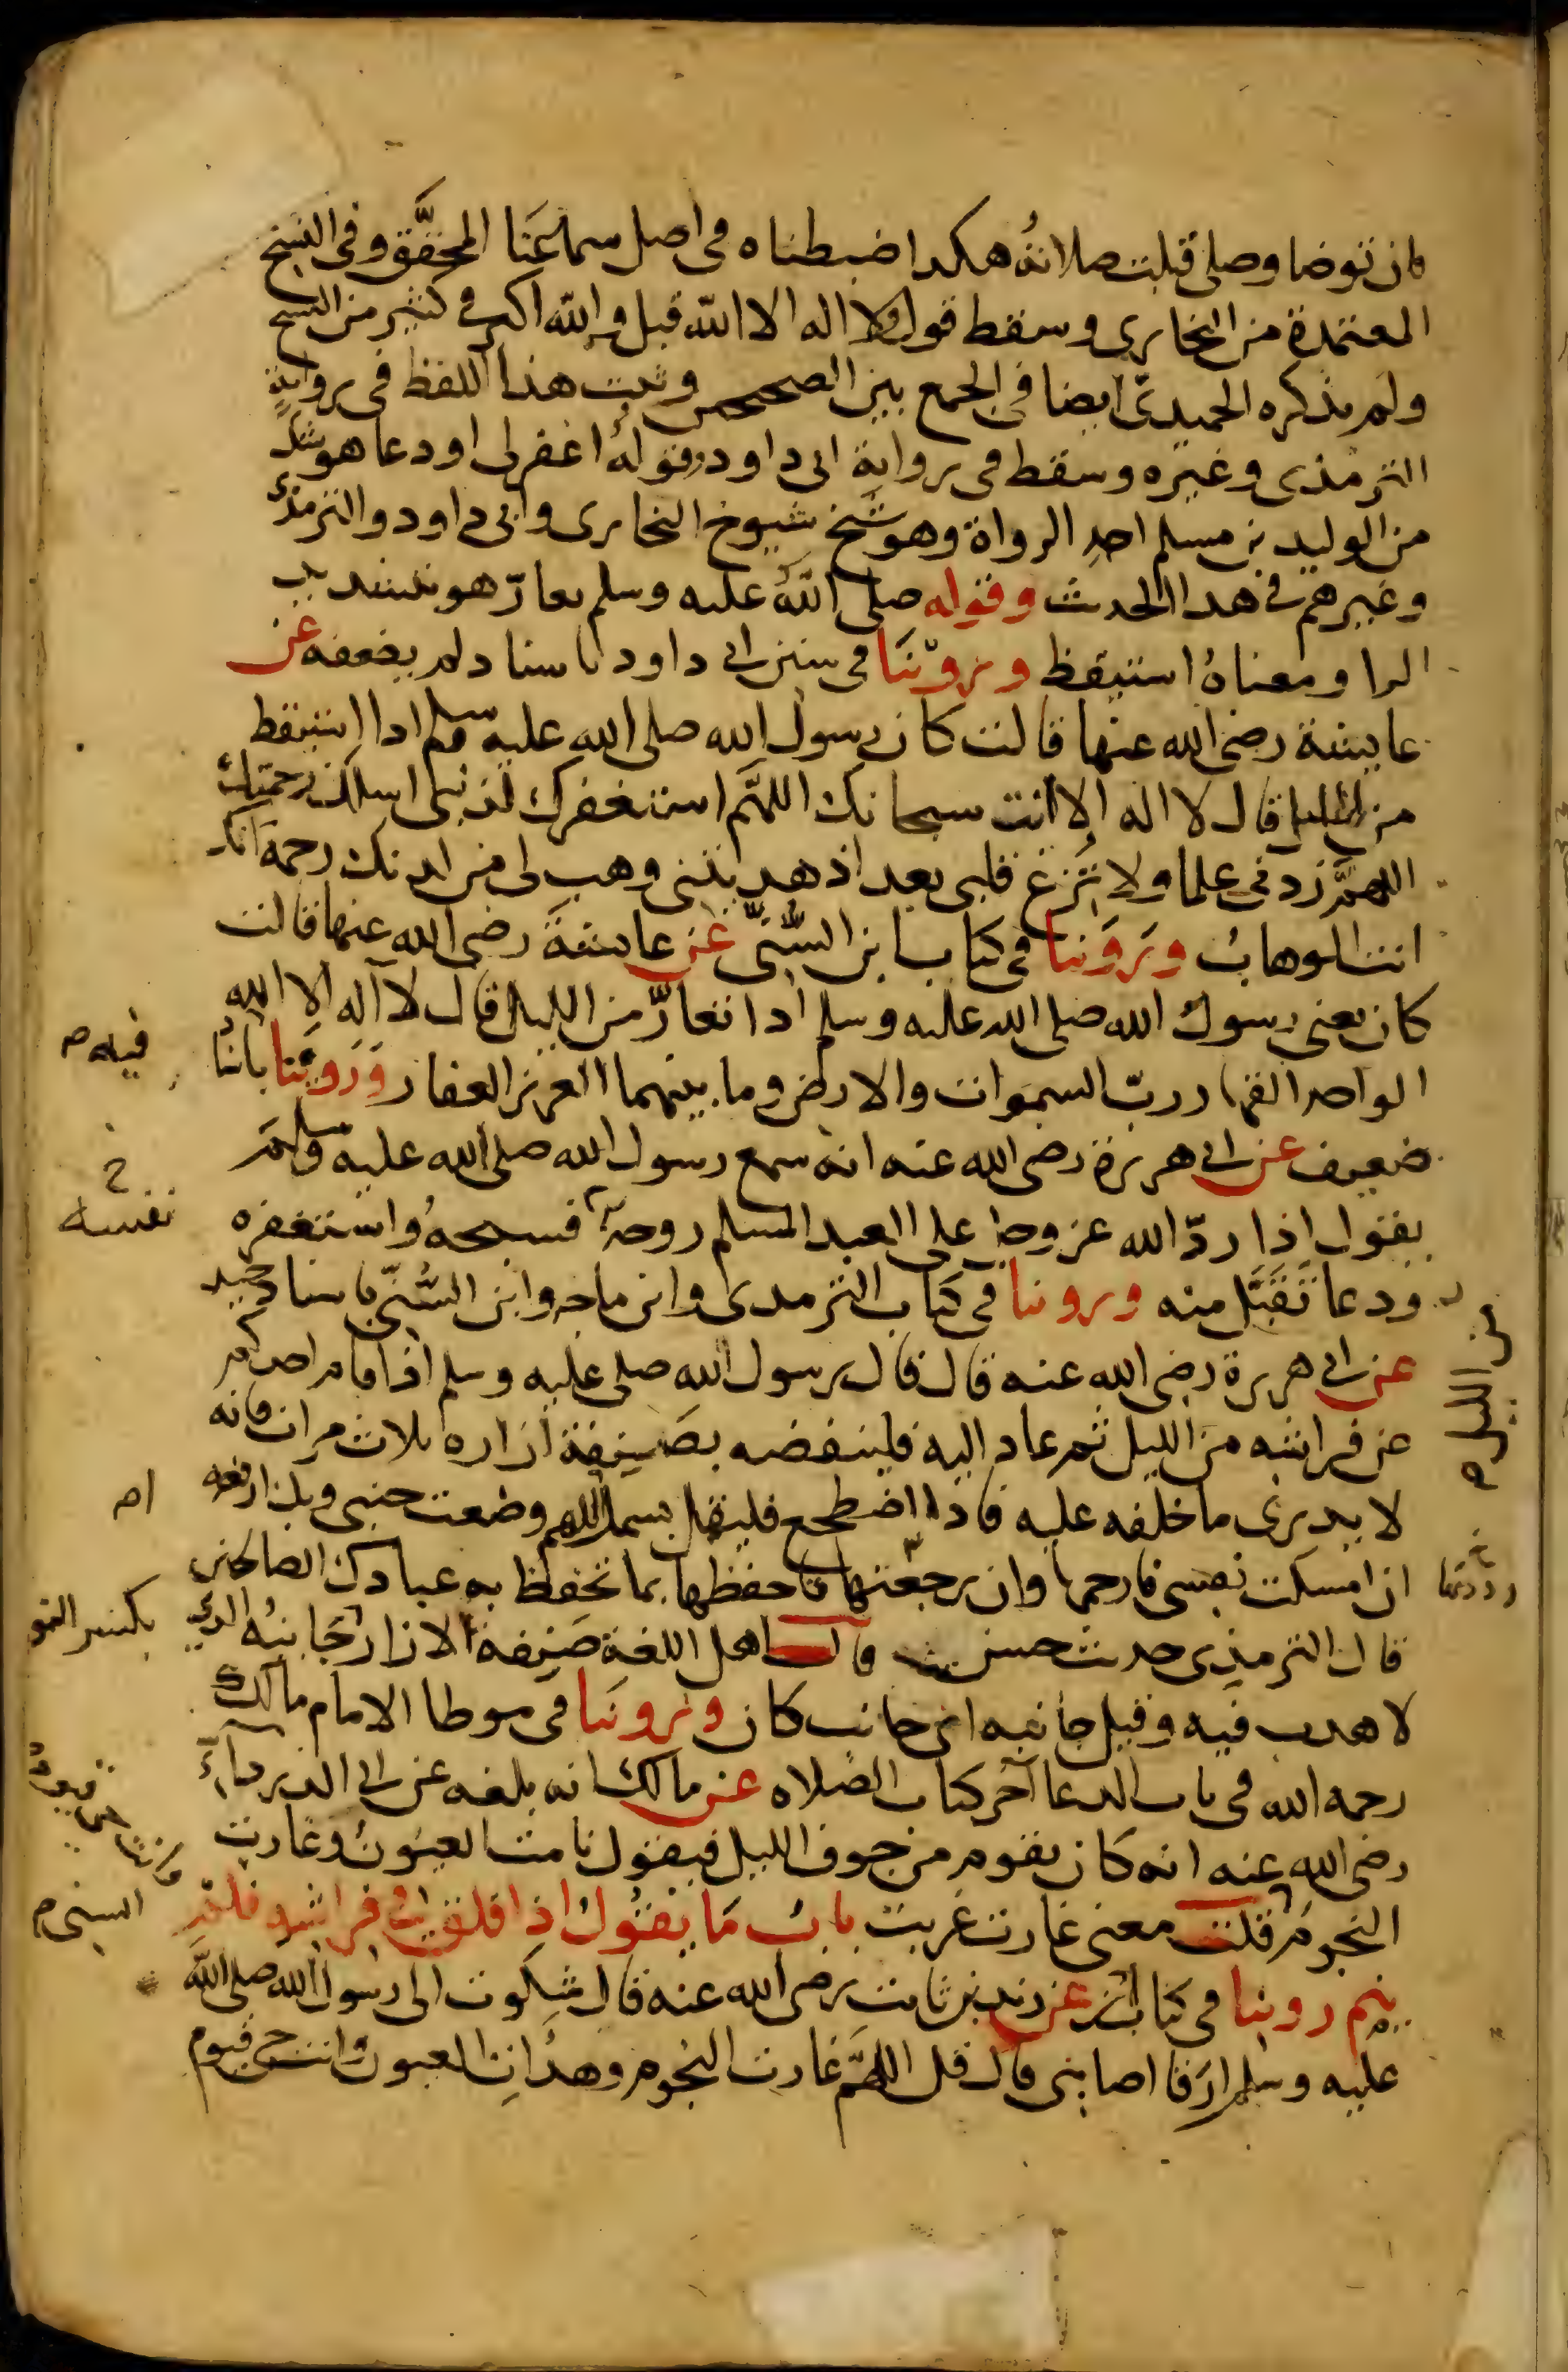 فان توضا وصلى قبلت صلاته هكذا ضبطناه في اصل سماعنا المحقق وفي النسخ
المعتمدة من البخاري وسقط قول ولا اله الا الله قبل والله اكبر في كثير من النسخ
ولم يذكره الحميدي ايضا في الجمع بين الصحيحين وثبت هذا اللفظ في رواية
الترمذي وغيره وسقط في رواية ابي داود وقوله اغفر لي او دعا هو شك
من الوليد بن مسلم احد الرواة وهو شيخ شيوخ البخاري وابي داود والترمذي
وغيرهم في هذا الحديث وقوله صلى الله عليه وسلم تعار هو بتشديد
الرا ومعناه استيقظ وروينا في سنن ابي داود باسناد لم يضعفه عن
عايشة رضي الله عنها قالت كان رسول الله صلى الله عليه وسلم اذا استيقظ
من الليل قال لا اله الا انت سبحانك اللهم استغفرك لذنبي اسلك رحمتك
اللهم زدني علما ولا تزغ قلبي بعد اذ هديتني وهب لي من لدنك رحمة انك
انت الوهاب وروينا في كتاب ابن السني عن عايشة رضي الله عنها قالت
كان تعني رسول الله صلى الله عليه وسلم اذا تعار من الليل قال لا اله الا الله
الواحد القهار رب السموات والارض وما بينهما العزيز الغفار وروينا باسنا
فيه
ضعيف عن ابي هريرة رضي الله عنه انه سمع رسول الله صلى الله عليه وسلم
يقول اذا رد الله عز وجل على العبد المسلم روحه فسبحه واستغفره
نفسه
ودعا تقبل منه وروينا في كتاب الترمذي وابن ماجه وابن السني باسناد جيد
عن ابي هريرة رضي الله عنه قال قال رسول الله صلى عليه وسلم اذا قام احدكم
من الليل
عن فراشه من الليل ثم عاد اليه فلينفضه بصنفة ازاره ثلاث مرات فانه
لا يدري ما خلفه عليه فاذا اضطجع فليقل بسمك اللهم وضعت جنبي وبك ارفعه
ان امسكت نفسي فارحمها وان رجعتها فاحفظها بما تحفظ به عبادك الصالحين
رددتها
قال الترمذي حديث حسن قال اهل اللغة صنفة الازار جانبه الذي
بكسر النو
لا هدب فيه وقيل جانبه اي جانب كان وروينا في موطا الامام مالك
رحمه الله في باب الدعا آخر كتاب الصلاه عن مالك انه بلغه عن ابي الدرداء
رضي الله عنه انه كان يقوم من جوف الليل فيقول نامت العيون وغارت
النجوم قلت معنى غارت غربت باب ما يقول اذا قلق في فراشه فلم
وانت حي قيوم
ينم روينا في كتاب ابن عن زيد بن ثابت رضي الله عنه قال شكوت الى رسول الله صلى الله
السني
عليه وسلم ارقا اصابني قال قل اللهم غارت النجوم وهدات العيون وانت حي قيوم